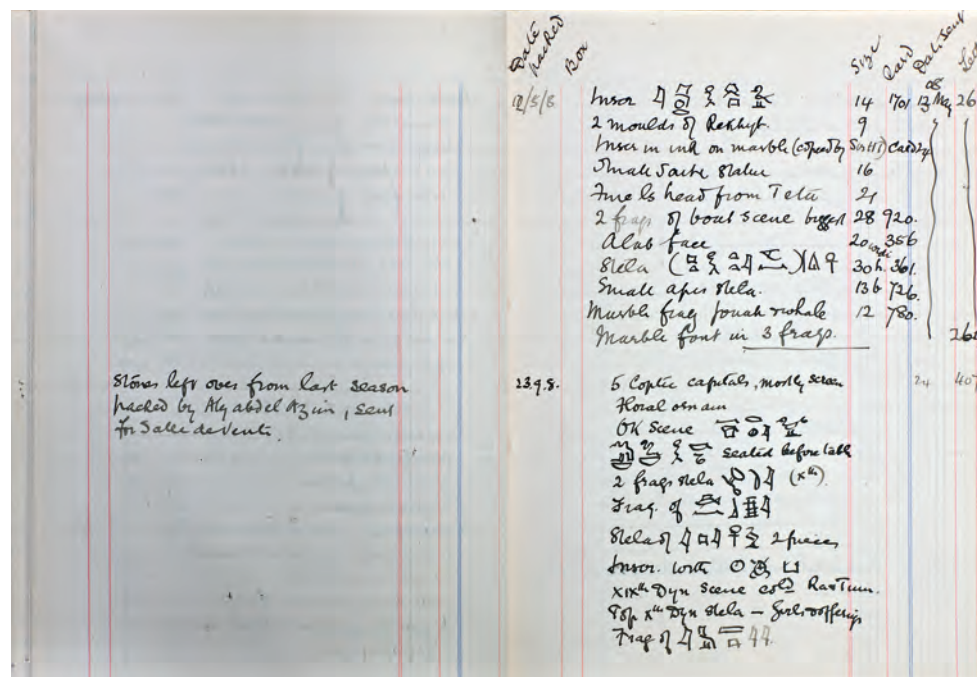 Stones left over from last season
packed by Aly abdel Azim, sent
for Salle de Vente.
Date packed Box Size Card Date sent
2/5/8 Inscr 14 701 13 May 08 26
2 moulds of Rekhyt. 9
Inscr in ink on marble (copied by Sir H) Card 24
Small Saite Statue 16
Fine ls head from Teta 21
2 frags of boat scene biggest 28 920.
Alab face 20 356
Stela ( ) 30 h. 361.
Small apis stela. 136 726.
Marble frag Jonah & whale 12 780.
Marble font in 3 frags. 262
23.9.8. 5 Coptic capitals, mostly screen 24 407
Floral ornam
OK Scene
seated before table
2 frags stela (Xth)
Frag. of
Stela of 2 pieces
Inscr. with
XIXth Dyn Scene cold
Top Xth Dyn stela – Girls & offerings
Frag of